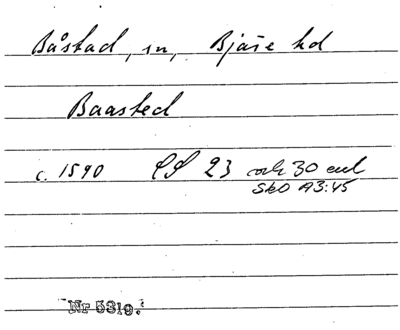 Båstad, sn, Bjäre hd
Baasted
c. 1590 LS 23 och 30 enl
SkO A3:45
Nr 5319.